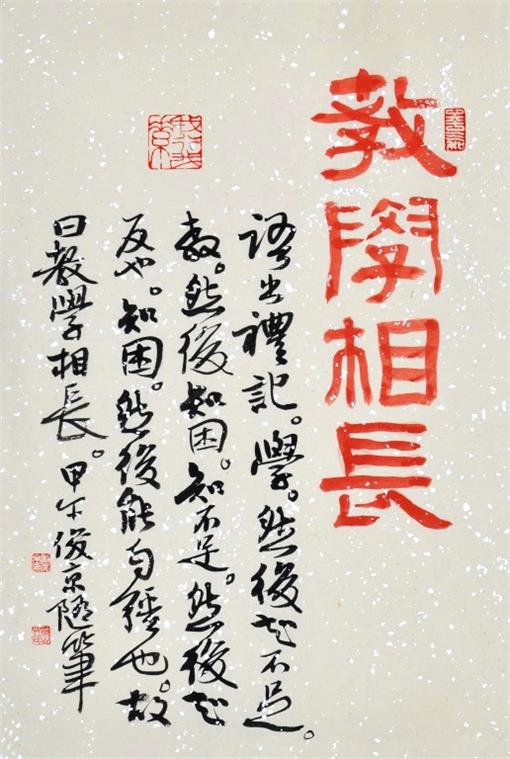 教學相長
語出禮記。學。然後知不足。
教。然後知困。知不足。然後知
反也。知困。然後能自強也。故
曰教學相長。甲午俊京隨筆